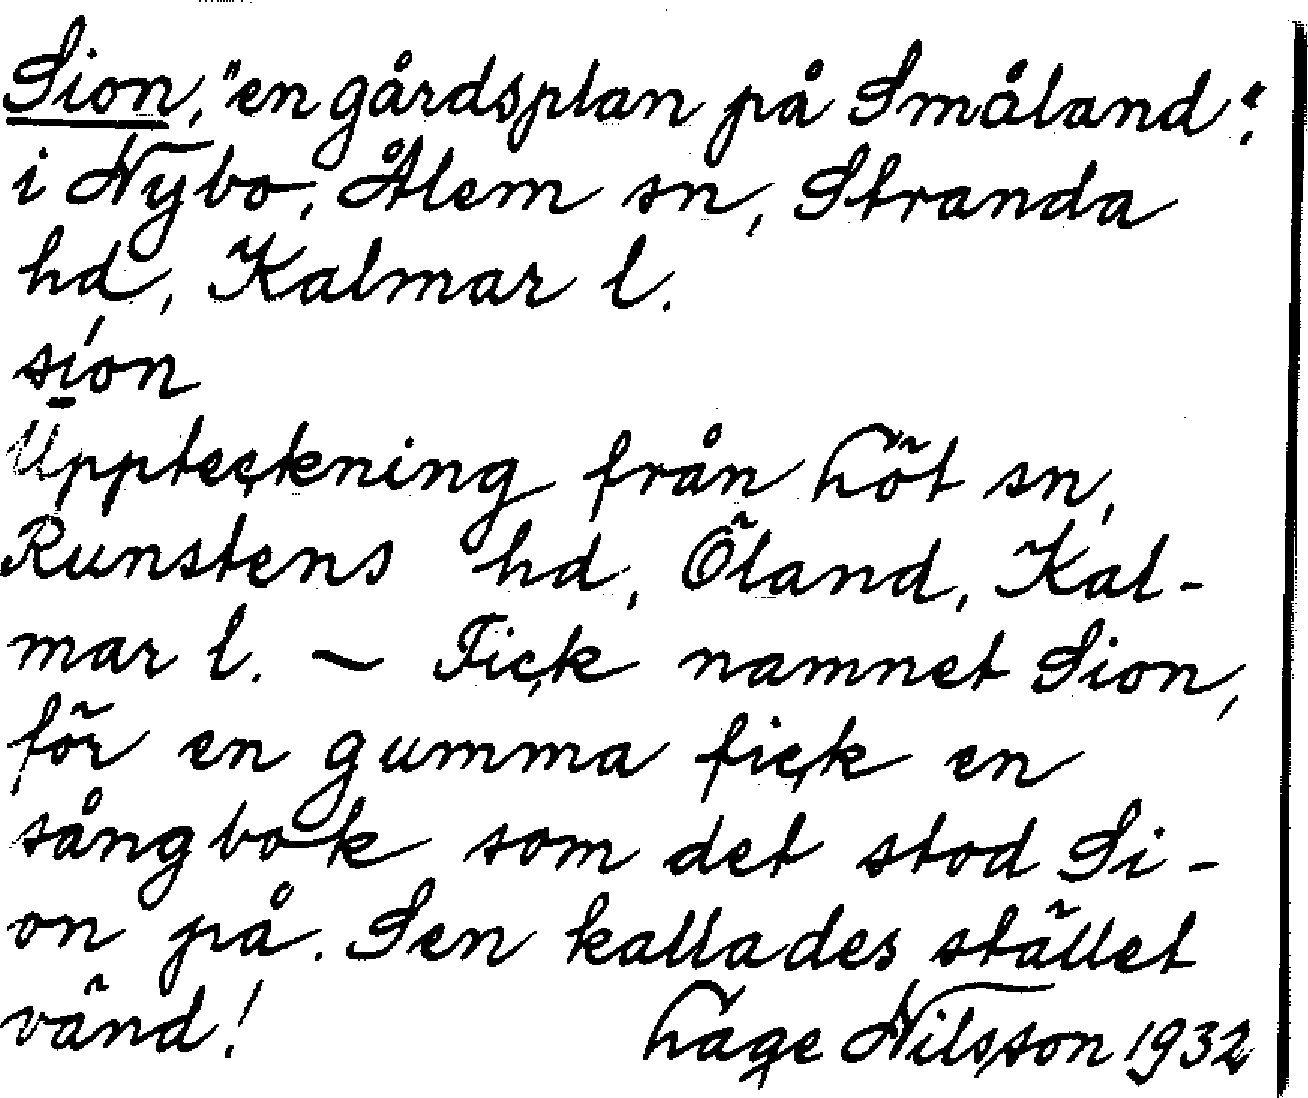 Sion, "en gårdsplan på Småland".
i Nybo, Ålem sn, Stranda
hd, Kalmar l.
síon
Uppteckning från Löt sn,
Runstens hd, Öland, Kal-
mar l. — Fick namnet Sion,
för en gumma fick en
sångbok som det stod Si-
on på. Sen kallades stället
vänd! Lage Nilsson 1932